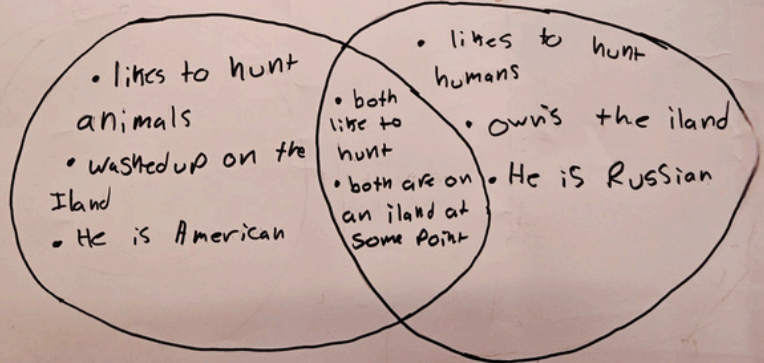 • likes to hunt
animals
• washed up on the
Iland
• He is American
• both
like to
hunt
• both are on
an iland at
some point
• likes to hunt
humans
• owns the iland
• He is Russian